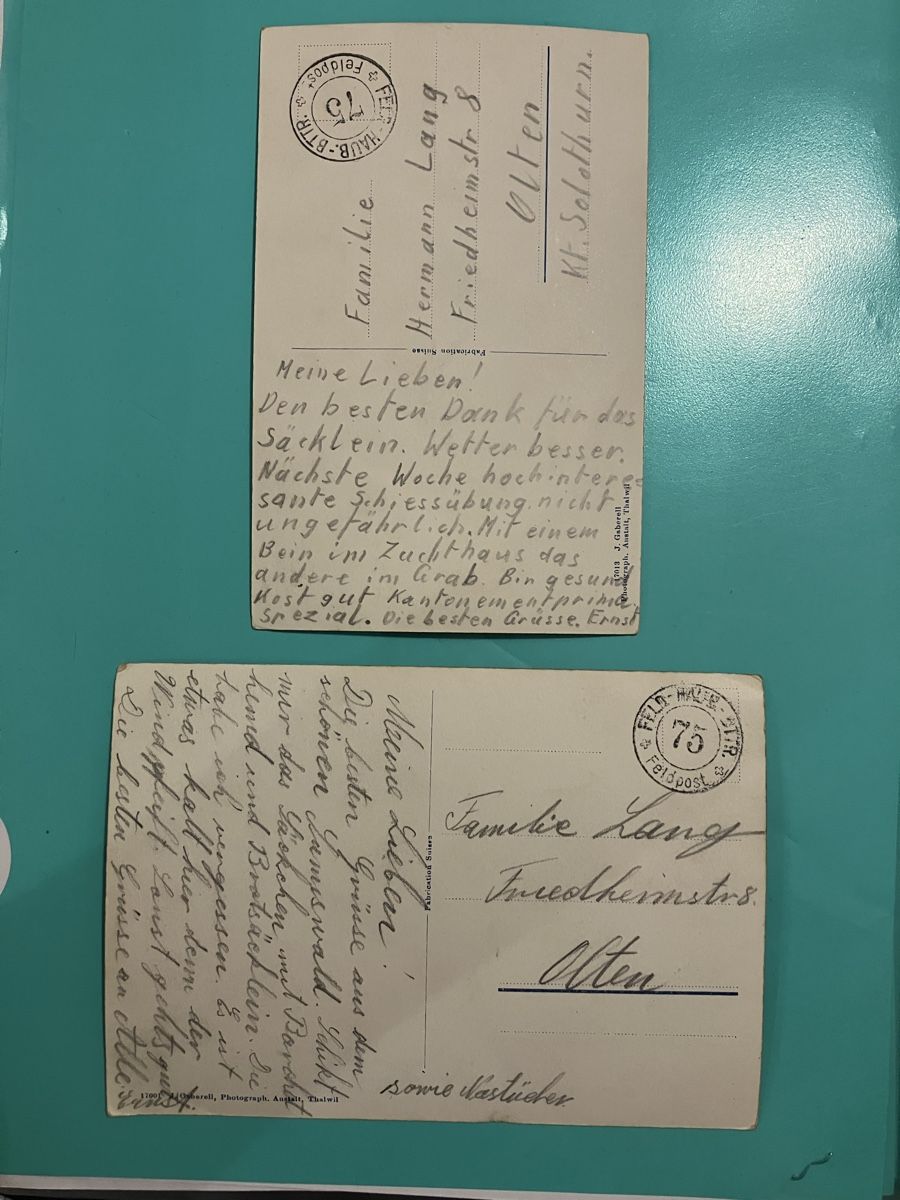 FELD-HAUB.-BTTR.
75
Feldpost
Familie
Hermann Lang
Friedheimstr 8
Olten
Kt. Solothurn.
Fabrication Suisse
Meine Lieben!
Den besten Dank für das
Säcklein. Wetter besser.
Nächste Woche hochintere=
sante Schiessübung, nicht
ungefährlich. Mit einem
Bein im Zuchthaus das
andere im Grab. Bin gesund
Kost gut Kantonement prima,
Spezial. Die besten Grüsse. Ernst
17013 J. Gaberell
Photograph. Anstalt, Thalwil
FELD-HAUB.-BTTR.
75
Feldpost
Familie Lang
Friedheimstr 8.
Olten
Fabrication Suisse
Meine Lieben!
Die besten Grüsse aus dem
schönen Samuswald. Schikt
mir das Säckchen mit Barchet
hemd und Brotsäcklein. Die
habe ich vergessen. Es ist
etwas kalt hier denn der
Wind pfeift. Sonst gehts gut
Die besten Grüsse an Alle.
Ernst.
sowie Nastücher
17001 J. Gaberell, Photograph. Anstalt, Thalwil
5